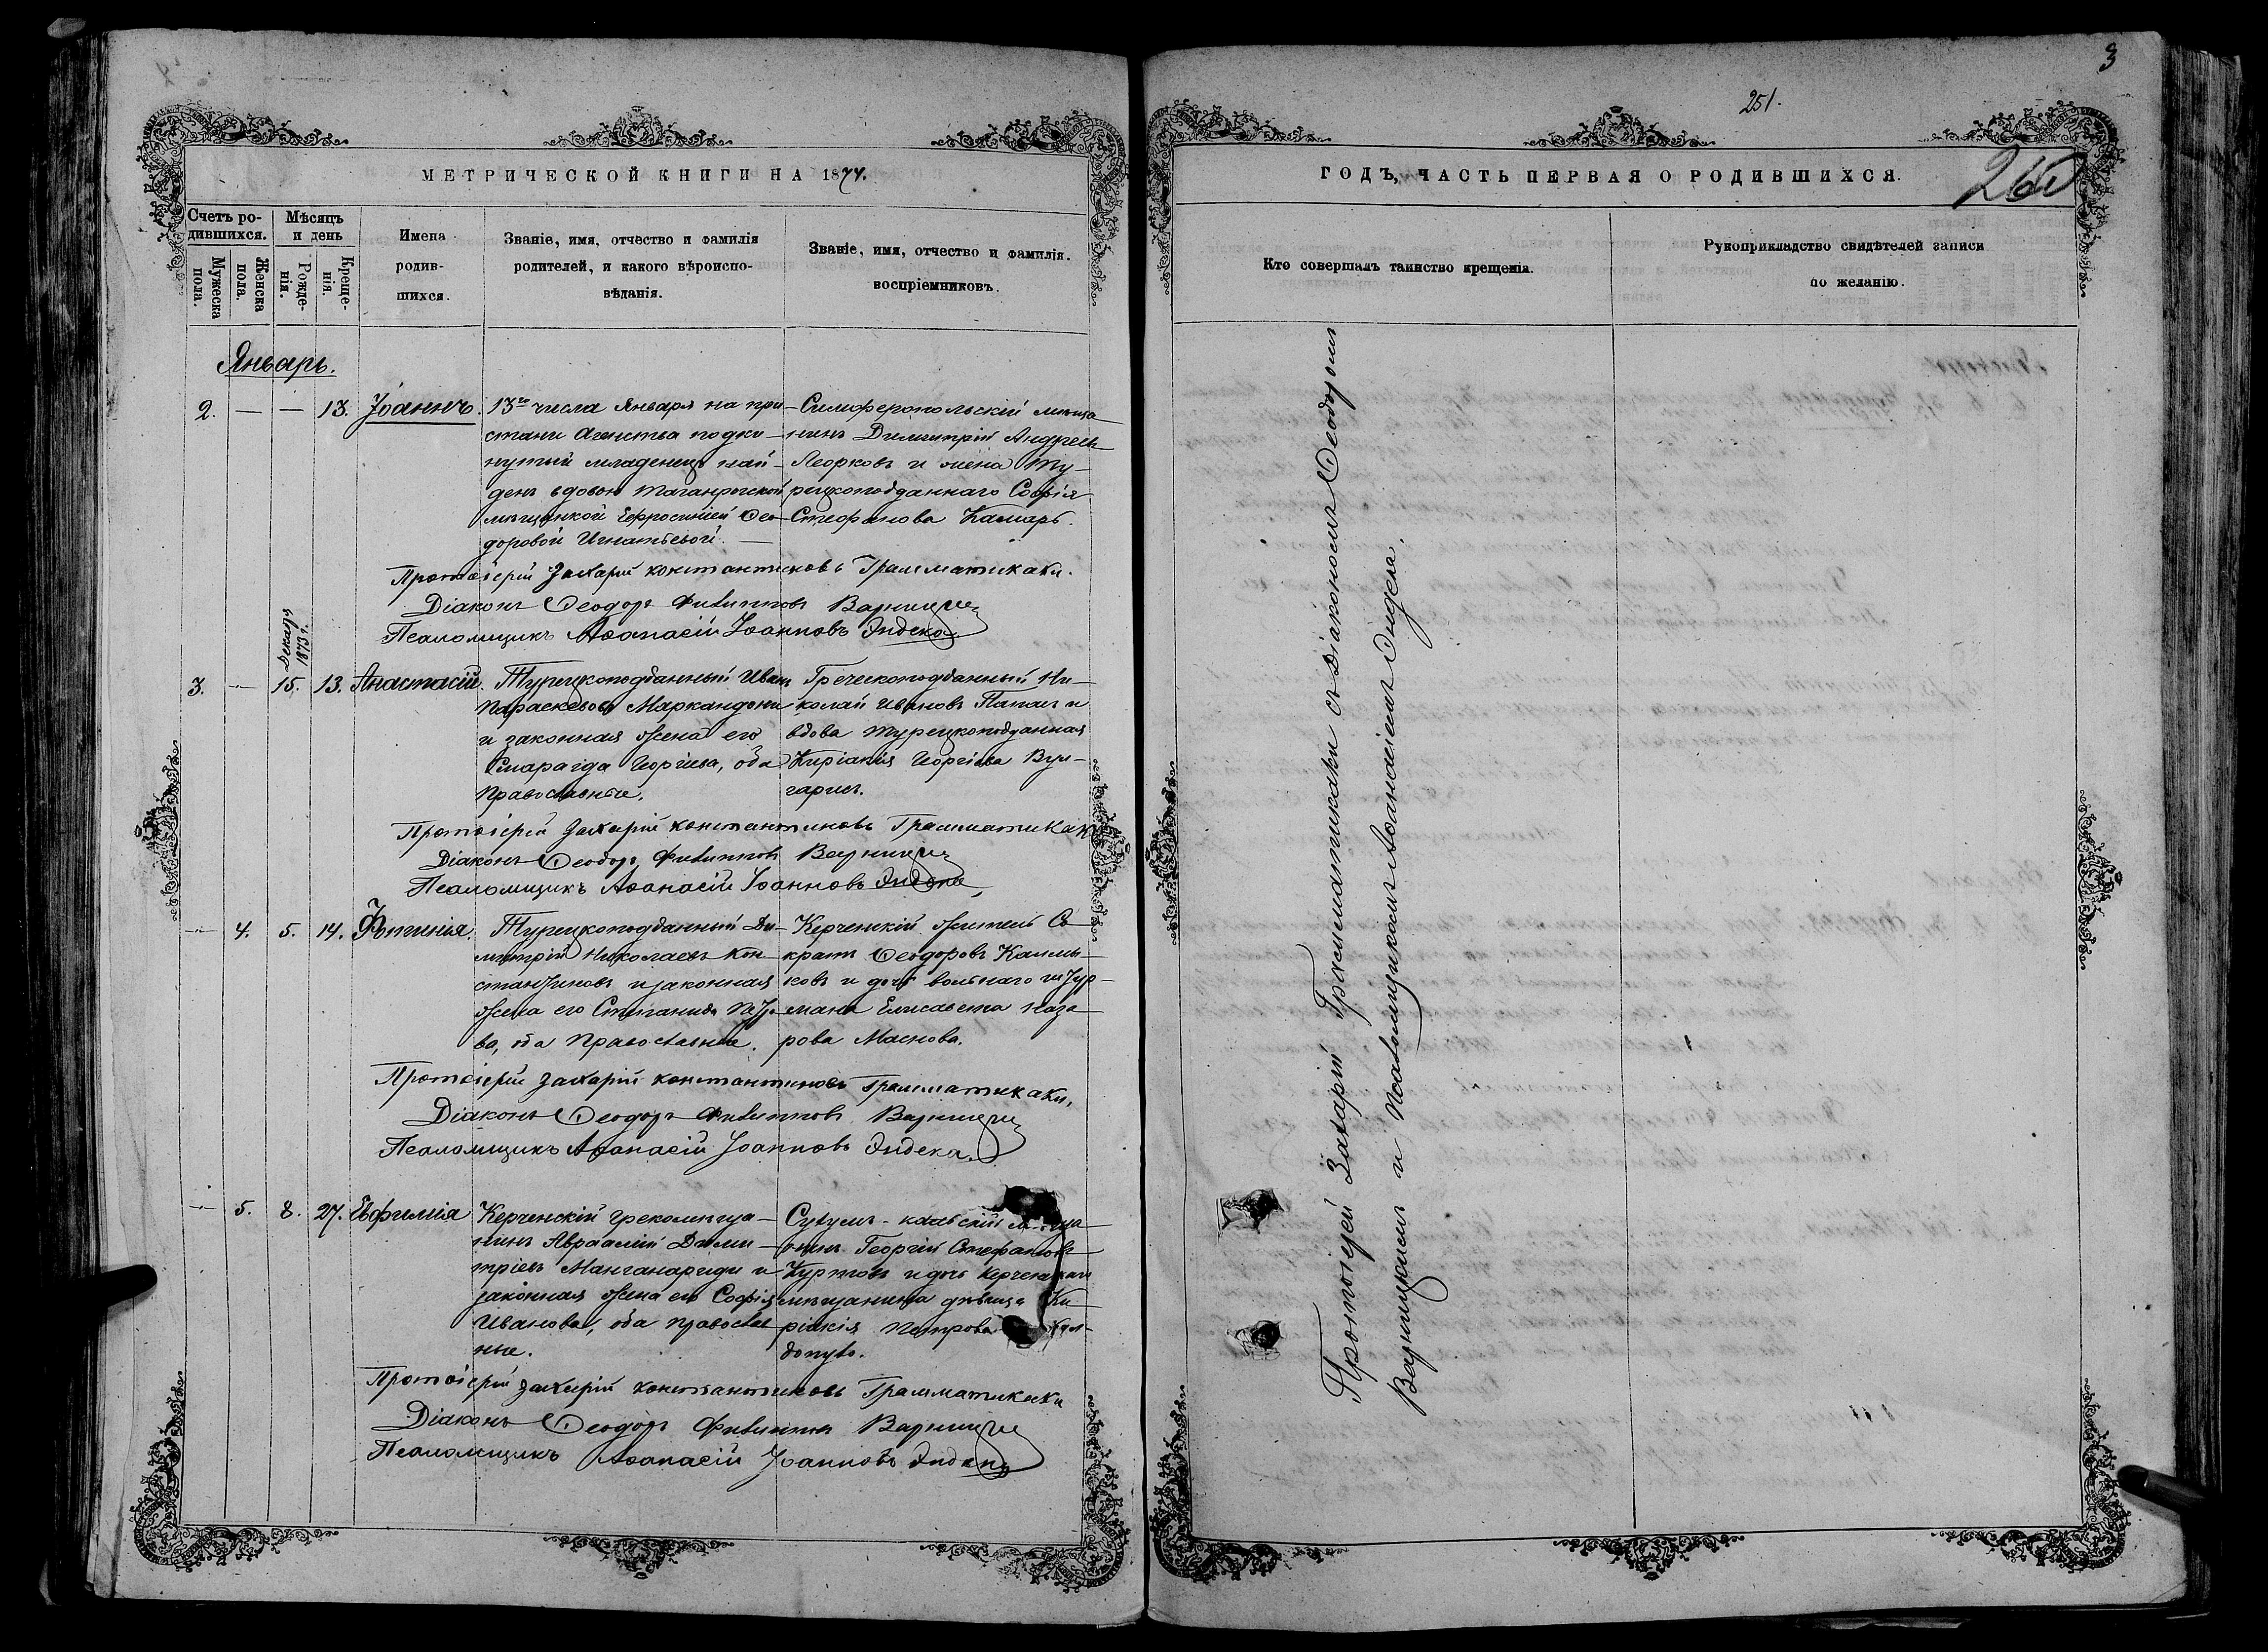 3
251.
260
МЕТРИЧЕСКОЙ КНИГИ НА 1874.
ГОДЪ, ЧАСТЬ ПЕРВАЯ О РОДИВШИХСЯ.
Счетъ родившихся.
Мужеска пола.
Женска пола.
Мѣсяцъ и день
Рожденія.
Крещенія.
Имена родившихся.
Званіе, имя, отчество и фамилія
родителей, и какого вѣроиспо-
вѣданія.
Званіе, имя, отчество и фамилія.
воспріемниковъ.
Кто совершалъ таинство крещенія.
Рукоприкладство свидѣтелей записи
по желанію.
Январь.
2. — — 13. Іоаннъ.
13го числа Января на при-
стани Агенства подки-
нутый младенецъ най-
денъ вдовою Таганрогской
мѣщанкой Ефросиніей Ѳео-
доровой Игнатьевой. —
Симферопольскій мѣща
нинъ Димитрій Андреевъ
и жена Ту-
рецкоподданнаго Софія
Стефанова Камарь.
Протоіерей Захарій Константиновъ Грамматикаки.
Діаконъ Ѳеодоръ Филипповъ Варницкій
Псаломщикъ Аѳанасій Іоанновъ Индека
3. — Декабря 1873 г. 15. 13. Анастасій.
Турецкоподданный Иванъ
Параскевовъ Маркандони
и законная жена его
Смарагда Георгіева, оба
Православные.
Греческоподданный Ни-
колай Ивановъ Папаъ и
вдова турецкоподданная
Киріакія Георгіева Вул-
гарисъ.
Протоіерей Захарій Константиновъ Грамматикаки
Діаконъ Ѳеодоръ Филипповъ Варницкій
Псаломщикъ Аѳанасій Іоанновъ Индека
— 4. 5. 14. Фотинія.
Турецкоподданный Ди-
митрій Николаевъ Кон-
стантиновъ и законная
жена его Степанида
ва, оба Православные.
Керченскій житель Со-
кратъ Ѳеодоровъ Калмы-
ковъ и дочь вольнаго штур-
мана Елисавета Наза-
рова Маснова.
Протоіерей Захарій Константиновъ Грамматикаки,
Діаконъ Ѳеодоръ Филипповъ Варницкій
Псаломщикъ Аѳанасій Іоанновъ Индека.
— 5. 8. 27. Евфимія
Керченскій грекомѣща-
нинъ Авраамій Дими-
тріевъ Манганариди и
законная жена его Софія
Иванова, оба православ-
ные.
нинъ Георгій Стефановъ
Куртовъ и дочь Керченскаго
мѣщанина дѣвица Ки-
ріакія Петрова
допуло.
Протоіерей Захарій Константиновъ Грамматикаки
Діаконъ Ѳеодоръ Филипповъ Варницкій
Псаломщикъ Аѳанасій Іоанновъ Индека
Протоіерей Захарій Грамматикаки съ Діакономъ Ѳеодоромъ
Варницкимъ и Псаломщикомъ Аѳанасіемъ Индека.